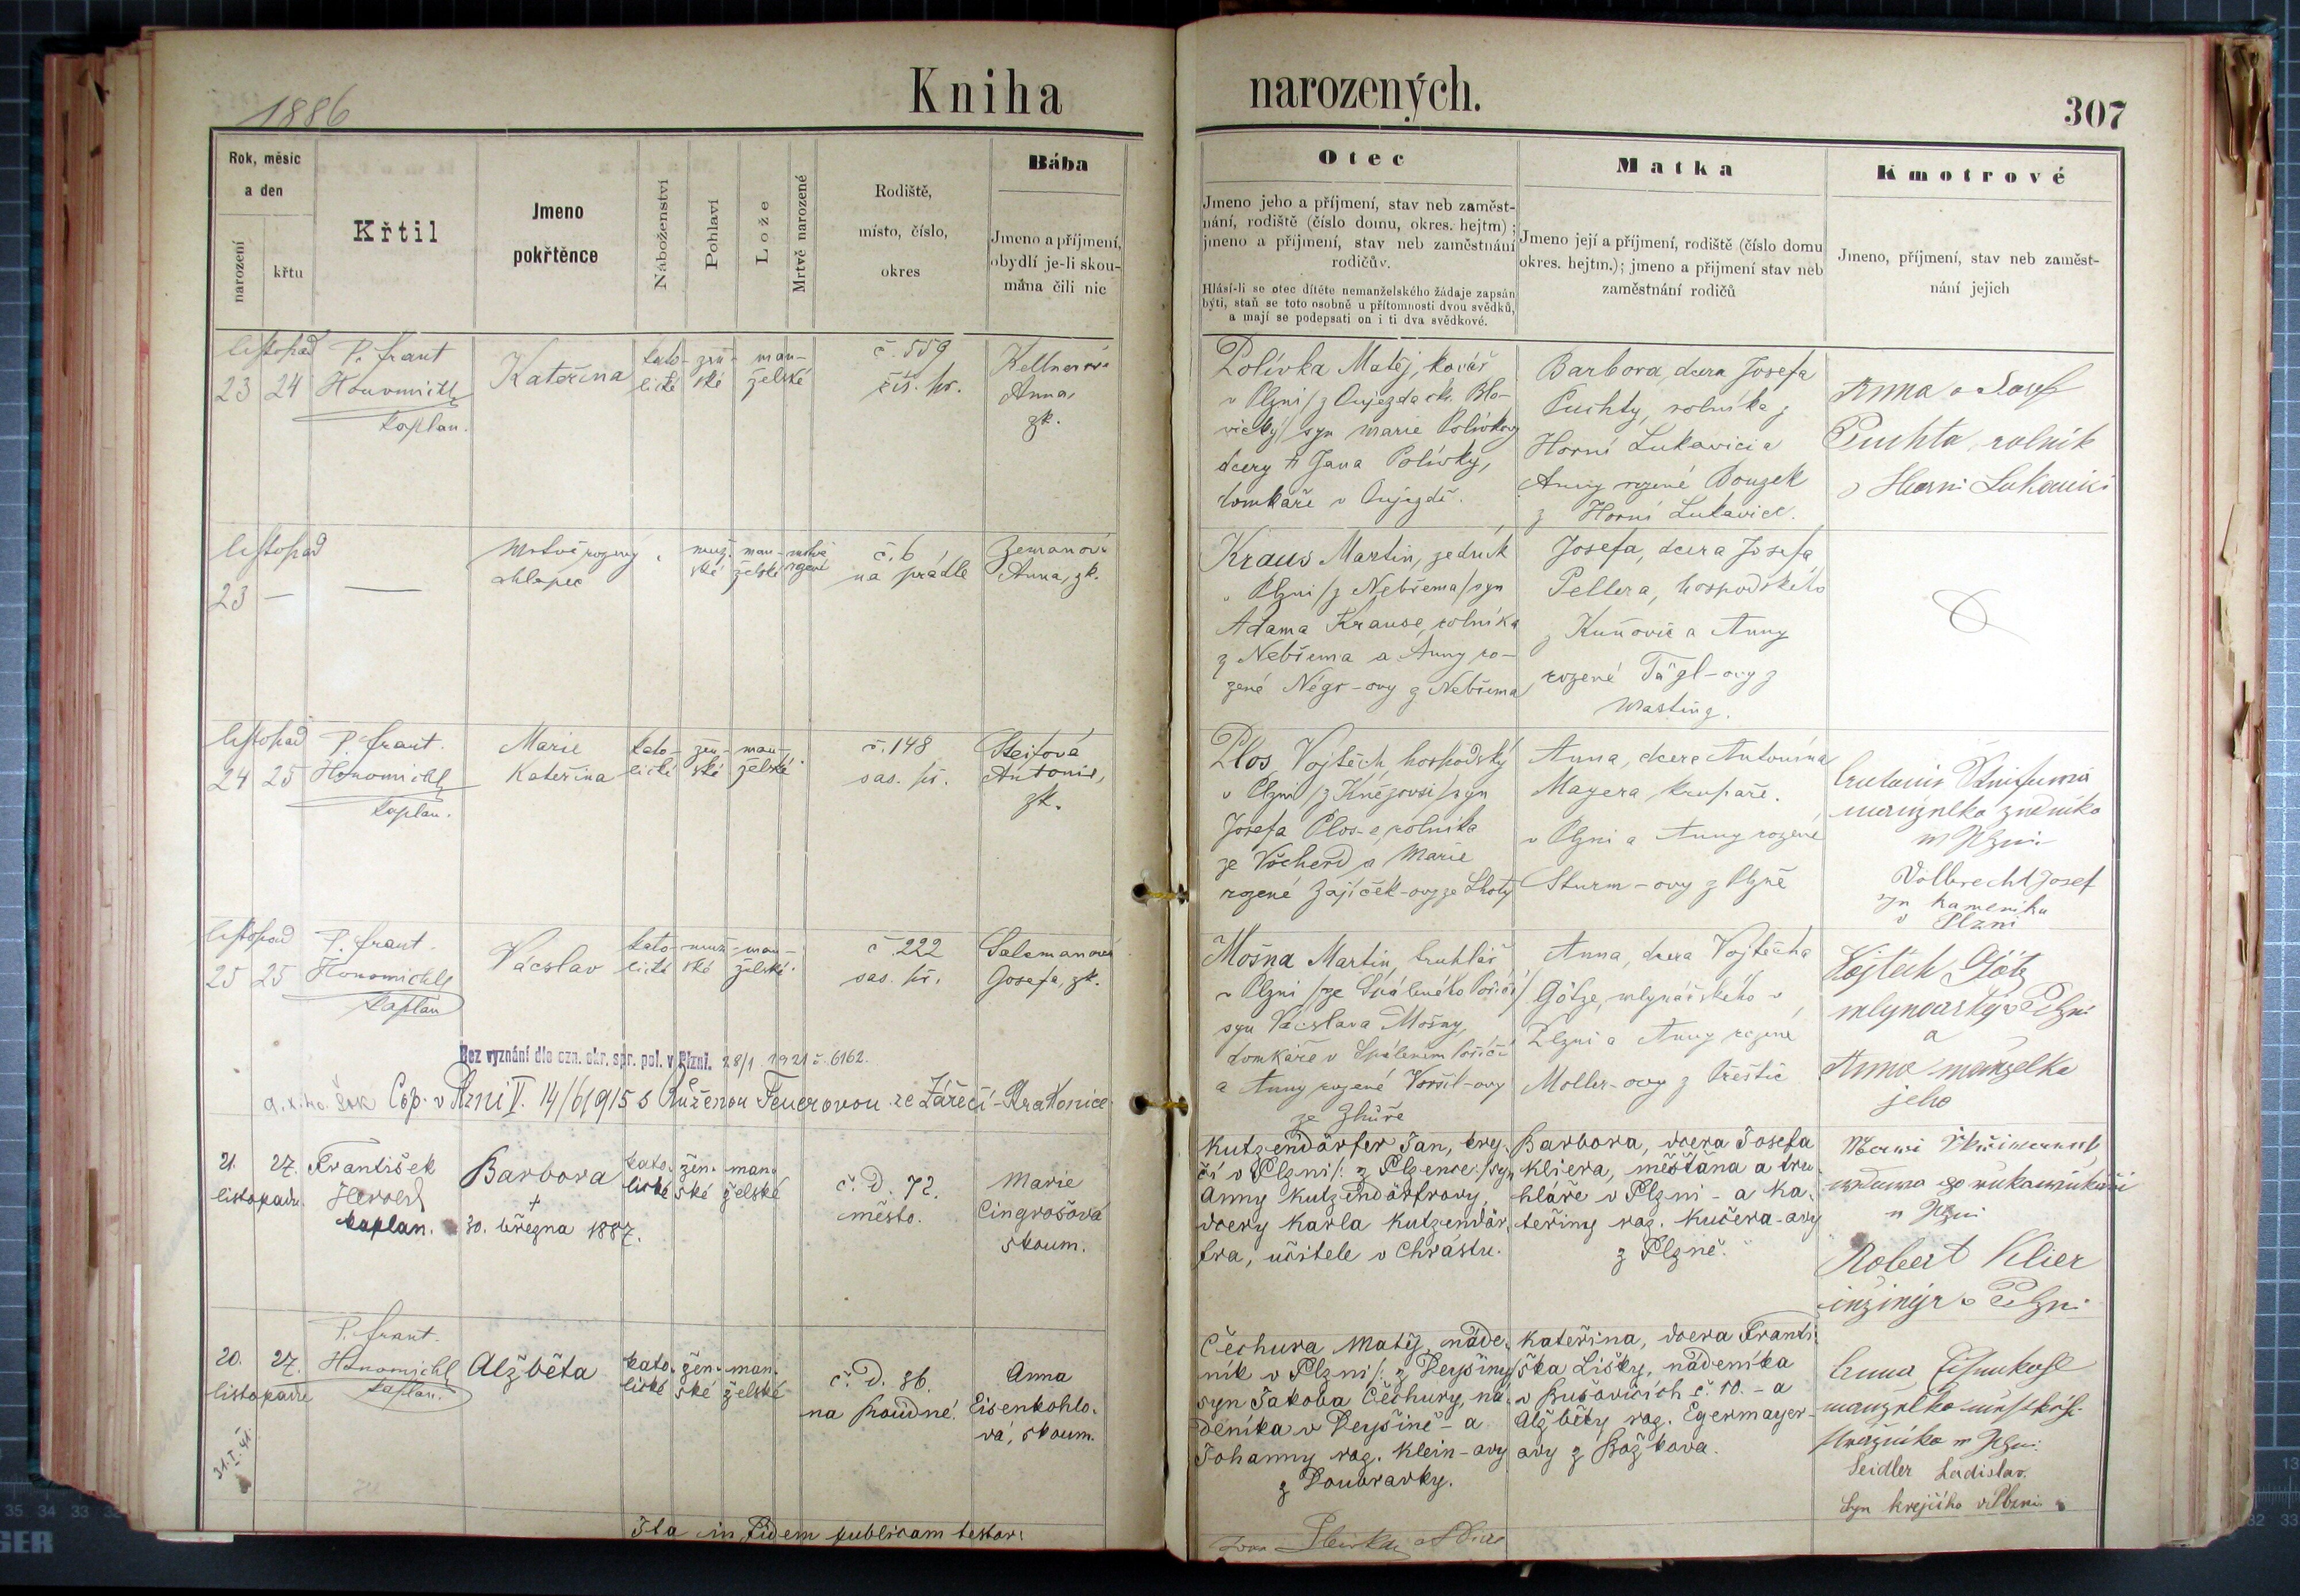 1886
Kniha narozených.
307
Rok, měsíc
a den
narození
křtu
Křtil
Jmeno
pokřtěnce
Náboženství
Pohlaví
Lože
Mrtvě narozené
Rodiště,
místo, číslo,
okres
Bába
Jmeno a příjmení,
obydlí je-li skou-
mána čili nic
Otec
Jmeno jeho a příjmení, stav neb zaměst-
nání, rodiště (číslo domu, okres. hejtm) ;
jmeno a příjmení, stav neb zaměstnání
rodičův.
Hlásí-li se otec dítěte nemanželského žádaje zapsán
býti, staň se toto osobně u přítomnosti dvou svědků,
a mají se podepsati on i ti dva svědkové.
Matka
Jmeno její a příjmení, rodiště (číslo domu
okres. hejtm.); jmeno a přijmení stav neb
zaměstnání rodičů
Kmotrové
Jmeno, příjmení, stav neb zaměst-
nání jejich
listopad
23 24
P. Frant
Honomichl
kaplan.
Kateřina
kato-
lické
žen-
ské
man-
želské
č. 559
říš. př.
Kellnerová
Anna,
zk.
Polívka Matěj, kovář
v Plzni / z Oujezda ok. Blo-
vický / syn Marie Polívkovy
dcery † Jana Polívky,
domkáře v Oujezdě.
Barbora, dcera Josefa
Puchty, rolníka z
Horní Lukavici a
Anny rozené Bouzek
z Horní Lukavice.
Anna a Josef
Puchta, rolník
v Horni Lukavici
listopad
23 —
—
Mrtvě rozený
chlapec
muž-
ské
man-
želské
mrtvě
rozené
č. 6
na prádle
Zemanová
Anna, zk.
Kraus Martin, zedník
v Plzni / z Nebřema / syn
Adama Krause, rolníka
z Nebřema a Anny ro-
zené Négr-ovy z Nebřema
Josefa, dcera Josefa
Pellera, hospodského
z Kuňovic a Anny
rozené Tägl-ovy z
Wasting.
listopad
24 25
P. Frant.
Honomichl
kaplan.
Marie
Kateřina
kato-
lické
žen-
ské
man-
želské
č. 148
sas. př.
Antonie,
zk.
Plos Vojtěch, hospodský
v Plzni / z Kněžovsi / syn
Josefa Plos-e, rolníka
ze Všeherd a Marie
rozené Zajíček-ovy ze Lhoty
Anna, dcera Antonína
Mayera, krupaře.
v Plzni a Anny rozené
Sturm-ovy z Plzně
manželka zedníka
v Plzni
Vollbrecht Josef
syn kameníka
v Plzni
listopad
25 25
P. Frant.
Honomichl
kaplan
Vácslav
kato-
lické
muž-
ské
man-
želské
č. 222
sas. př.
Salzmanová
Josefa, zk.
Mošna Martin, truhlář
v Plzni / ze Spáleného Poříčí /
syn Vácslava Mošny,
domkáře v Spáleném Poříčí
a Anny rozené Voršil-ovy
ze Zhůře
Anna, dcera Vojtěcha
Götze, mlynářského v
Plzni a Anny rozené
Moller-ovy z Přeštic
Vojtěch Götz
mlynarský v Plzni
a
Anna manzelka
jeho
Bez vyznání dle ozn. okr. spr. pol. v Plzni. 28/1 1921 č. 6162.
Cop. v Plzni V. 14/6 1915 s Růženou Feuerovou ze Zářečí - Strakonice
21. 27.
listopadu.
František
Herold
kaplan.
Barbora
†
30. března 1887.
kato-
lické
žen-
ské
man-
želské
č. D. 72.
město.
Marie
Cingrošova
skoum.
Kutzendörfer Jan, krej-
čí v Plzni /: z Plzence :/ syn
Anny Kutzendörfrovy,
dcery Karla Kutzendör-
fra, učitele v Chrástu.
Barbora, dcera Josefa
Kliera, měšťána a tru-
hláře v Plzni - a Ka-
teřiny roz. Kučera-ovy
z Plzně.
v Plzni
Robert Klier
inžinýr v Plzni
20. 27.
listopadu
P. Frant.
Honomichl
kaplan.
Alžběta
kato-
lické
žen-
ské
man-
želské
č. D. 36.
na proudné.
Anna
Eisenkohlo-
vá, skoum.
Čechura Matěj, náde-
ník v Plzni /: z Dejšiny
syn Jakoba Čechury, ná-
deníka v Dejšině - a
Johanny roz. Klein-ovy
z Doubravky.
Kateřina, dcera Franti-
ška Lišky, nádeníka
v Bušovicích č. 10. - a
Alžběty roz. Egermayer-
ovy z Božkova.
Seidler Ladislav.
syn krejčího v Plzni.
31. I. 41.
Ita in fidem publicam testor: